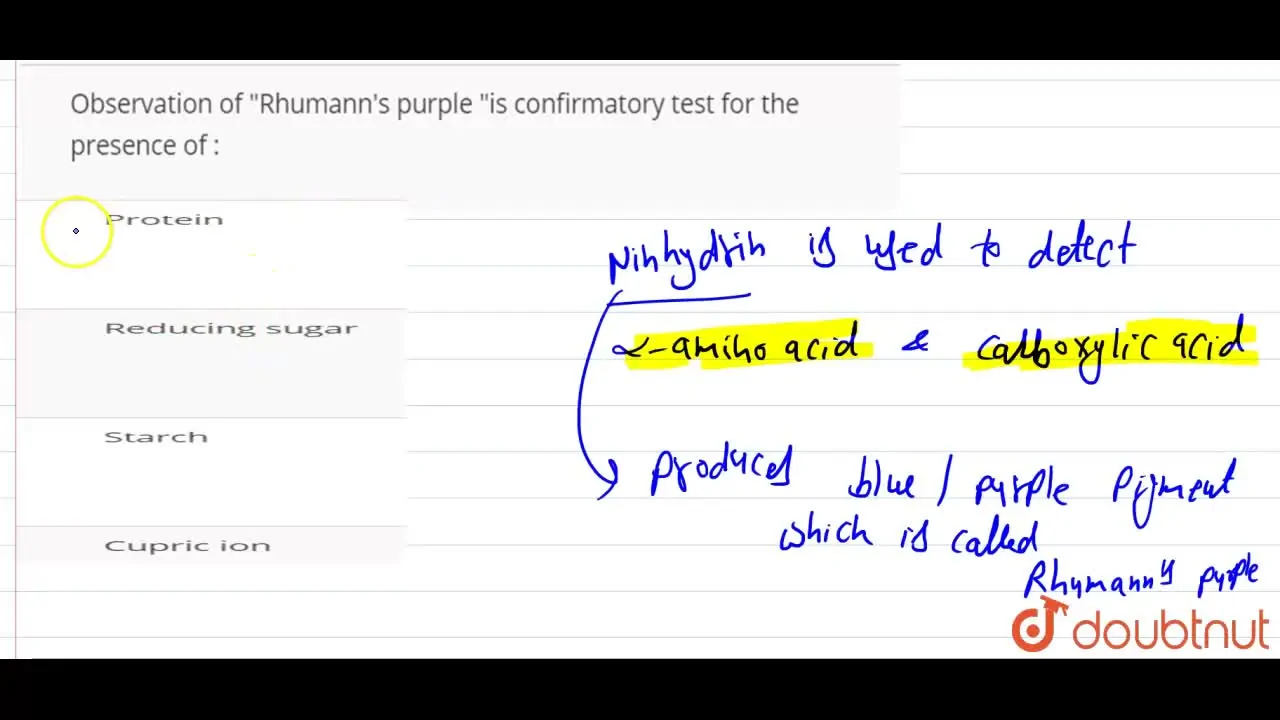 Observation of "Rhumann's purple "is confirmatory test for the
presence of :
Protein
Reducing sugar
Starch
Cupric ion
Ninhydrin is used to detect
α-amino acid & carboxylic acid
produces blue / purple Pigment
which is called
Rhumann's purple
doubtnut